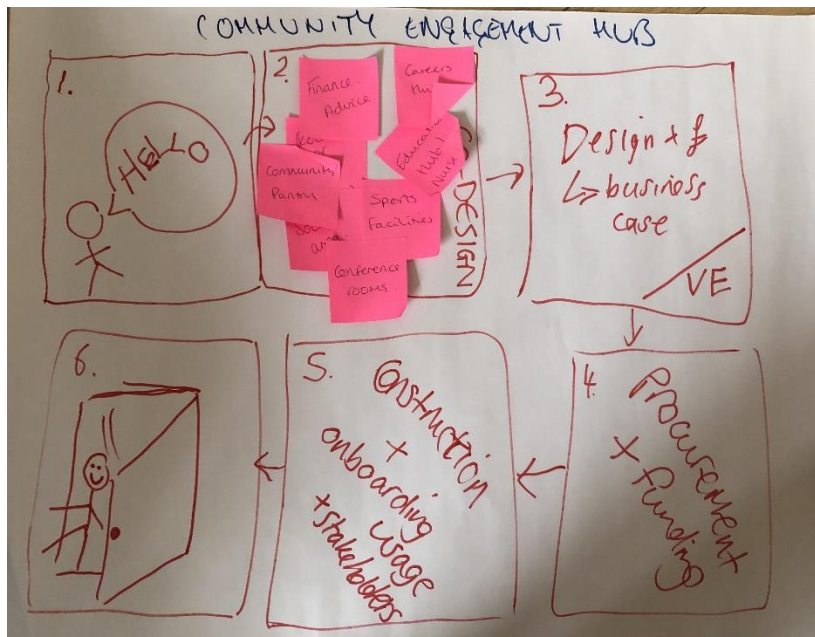 COMMUNITY ENGAGEMENT HUB
1.
HELLO
2.
Finance
Advice
Careers
Community
Pantry
Education
Hub /
Nurse
Sports
facilities
Conference
rooms
CO-DESIGN
3.
Design + £
↳ business
case
VE
4.
Procurement
+ funding
5.
Construction
+
onboarding
usage
+ stakeholders
6.